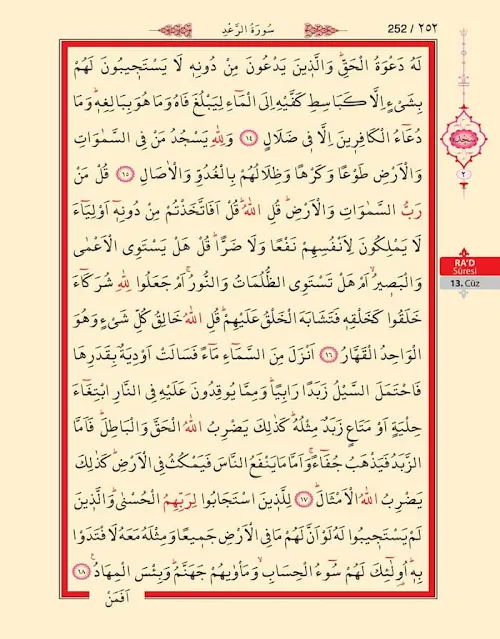 سُورَةُ الرَّعْدِ
252 / ٢٥٢
لَهُ دَعْوَةُ الْحَقِّۜ وَالَّذ۪ينَ يَدْعُونَ مِنْ دُونِه۪ لَا يَسْتَج۪يبُونَ لَهُمْ
بِشَيْءٍ اِلَّا كَبَاسِطِ كَفَّيْهِ اِلَى الْمَٓاءِ لِيَبْلُغَ فَاهُ وَمَا هُوَ بِبَالِغِه۪ۜ وَمَا
دُعَٓاءُ الْكَافِر۪ينَ اِلَّا ف۪ي ضَلَالٍ ﴿١٤﴾ وَلِلّٰهِ يَسْجُدُ مَنْ فِي السَّمٰوَاتِ
وَالْاَرْضِ طَوْعًا وَكَرْهًا وَظِلَالُهُمْ بِالْغُدُوِّ وَالْاٰصَالِ ﴿١٥﴾ قُلْ مَنْ
رَبُّ السَّمٰوَاتِ وَالْاَرْضِۜ قُلِ اللّٰهُۜ قُلْ اَفَاتَّخَذْتُمْ مِنْ دُونِه۪ٓ اَوْلِيَٓاءَ
لَا يَمْلِكُونَ لِاَنْفُسِهِمْ نَفْعًا وَلَا ضَرًّاۜ قُلْ هَلْ يَسْتَوِي الْاَعْمٰى
وَالْبَص۪يرُۙ اَمْ هَلْ تَسْتَوِي الظُّلُمَاتُ وَالنُّورُۚ اَمْ جَعَلُوا لِلّٰهِ شُرَكَٓاءَ
خَلَقُوا كَخَلْقِه۪ فَتَشَابَهَ الْخَلْقُ عَلَيْهِمْۜ قُلِ اللّٰهُ خَالِقُ كُلِّ شَيْءٍ وَهُوَ
الْوَاحِدُ الْقَهَّارُ ﴿١٦﴾ اَنْزَلَ مِنَ السَّمَٓاءِ مَٓاءً فَسَالَتْ اَوْدِيَةٌ بِقَدَرِهَا
فَاحْتَمَلَ السَّيْلُ زَبَدًا رَابِيًاۜ وَمِمَّا يُوقِدُونَ عَلَيْهِ فِي النَّارِ ابْتِغَٓاءَ
حِلْيَةٍ اَوْ مَتَاعٍ زَبَدٌ مِثْلُهُۜ كَذٰلِكَ يَضْرِبُ اللّٰهُ الْحَقَّ وَالْبَاطِلَۜ فَاَمَّا
الزَّبَدُ فَيَذْهَبُ جُفَٓاءًۚ وَاَمَّا مَا يَنْفَعُ النَّاسَ فَيَمْكُثُ فِي الْاَرْضِۜ كَذٰلِكَ
يَضْرِبُ اللّٰهُ الْاَمْثَالَۜ ﴿١٧﴾ لِلَّذ۪ينَ اسْتَجَابُوا لِرَبِّهِمُ الْحُسْنٰىۜ وَالَّذ۪ينَ
لَمْ يَسْتَج۪يبُوا لَهُ لَوْ اَنَّ لَهُمْ مَا فِي الْاَرْضِ جَم۪يعًا وَمِثْلَهُ مَعَهُ لَافْتَدَوْا
بِه۪ۜ اُو۬لٰٓئِكَ لَهُمْ سُٓوءُ الْحِسَابِۙ وَمَأْوٰيهُمْ جَهَنَّمُۜ وَبِئْسَ الْمِهَادُ۟ ﴿١٨﴾
اَفَمَنْ
سجده
٢
RA'D
Sûresi
13. Cüz